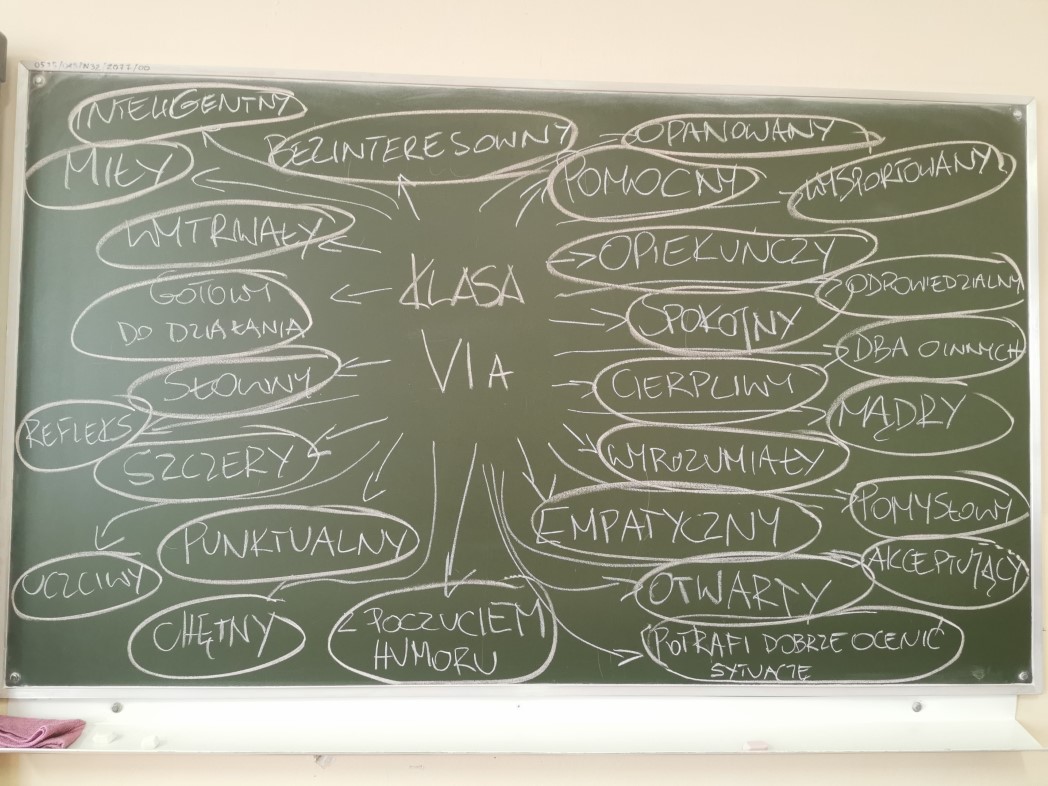 INTELIGENTNY
BEZINTERESOWNY
OPANOWANY
MIŁY
POMOCNY
WYSPORTOWANY
WYTRWAŁY
OPIEKUŃCZY
KLASA
VI A
GOTOWY
DO DZIAŁANIA
ODPOWIEDZIALNY
SPOKOJNY
DBA O INNYCH
SŁOWNY
CIERPLIWY
REFLEKS
MĄDRY
SZCZERY
WYROZUMIAŁY
POMYSŁOWY
PUNKTUALNY
EMPATYCZNY
UCZCIWY
AKCEPTUJĄCY
OTWARTY
CHĘTNY
Z POCZUCIEM
HUMORU
POTRAFI DOBRZE OCENIĆ
SYTUACJE